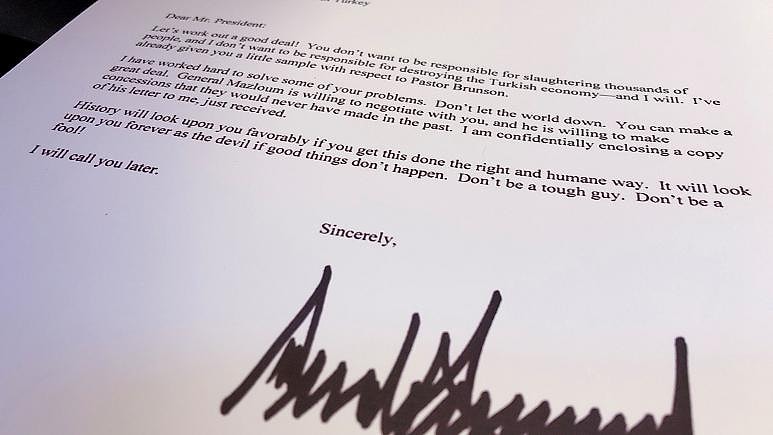 Turkey
Dear Mr. President:
Let's work out a good deal! You don't want to be responsible for slaughtering thousands of
people, and I don't want to be responsible for destroying the Turkish economy—and I will. I've
already given you a little sample with respect to Pastor Brunson.
I have worked hard to solve some of your problems. Don't let the world down. You can make a
great deal. General Mazloum is willing to negotiate with you, and he is willing to make
concessions that they would never have made in the past. I am confidentially enclosing a copy
of his letter to me, just received.
History will look upon you favorably if you get this done the right and humane way. It will look
upon you forever as the devil if good things don't happen. Don't be a tough guy. Don't be a
fool!
I will call you later.
Sincerely,